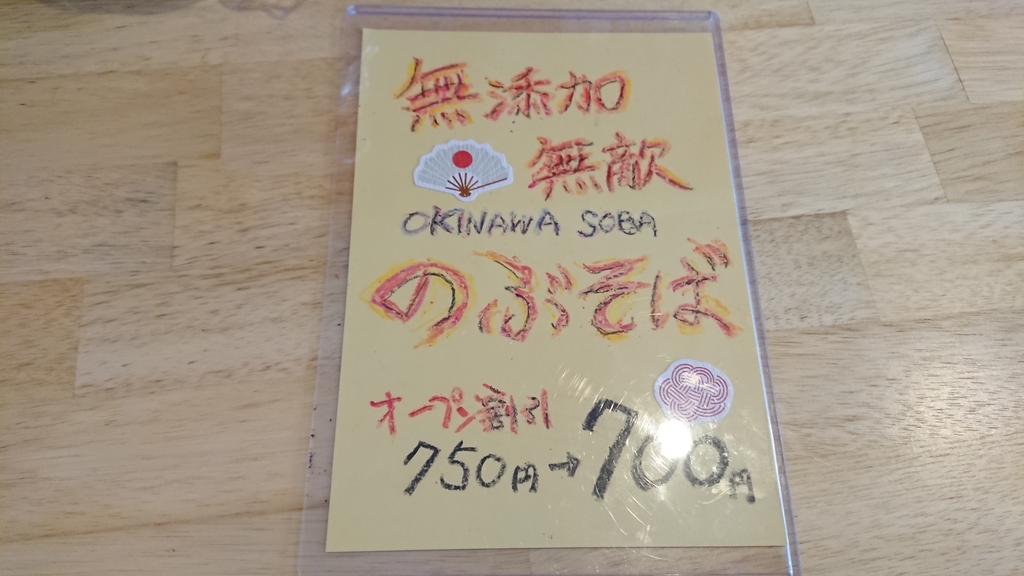 無添加
無敵
OKINAWA SOBA
のぶそば
オープン割引
750円→700円